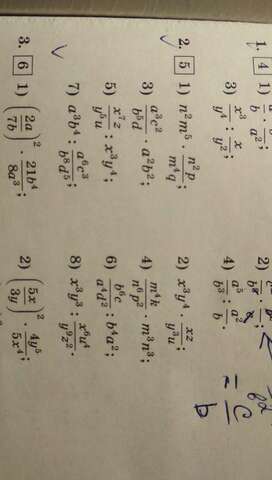 1. 4 1) 2)
3) x³/y⁴ : x/y²; 4) a⁵/b³ : a²/b.
= c/b
2. 5 1) n²m⁵ · n²p/m⁴q; 2) x³y⁴ · xz/y³u;
3) a³c²/b⁵d · a²b²; 4) m⁴k/n⁶p² · m³n³;
5) x⁷z/y⁵u : x³y⁴; 6) b⁶c/a⁴d² : b⁴a²;
7) a³b⁴ : a⁶c³/b⁸d⁵; 8) x³y³ : x⁶u⁴/y⁹z².
3. 6 1) (2a/7b)² · 21b⁴/8a³; 2) (5x/3y)² · 4y⁵/5x⁴;